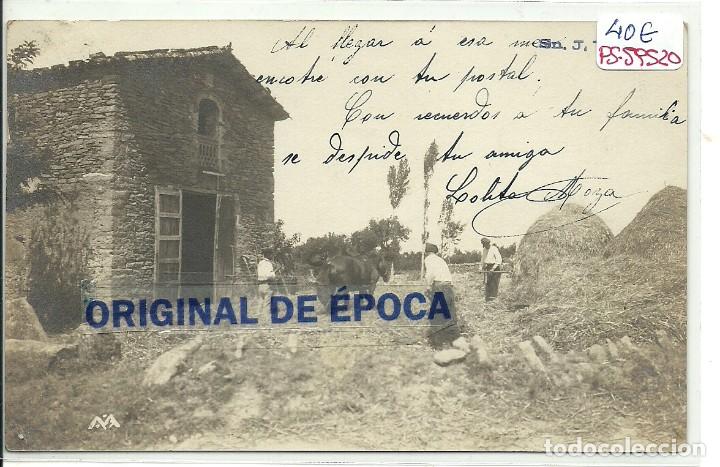 40€
PS-59520
Al llegar á esa me
Sn. J.
encotré con tu postal.
Con recuerdos a tu familia
se despide tu amiga
Lolita Moya
ORIGINAL DE ÉPOCA
todocoleccion.net